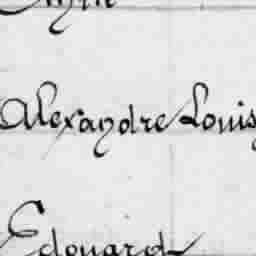 Alexandre Louis
Edouard